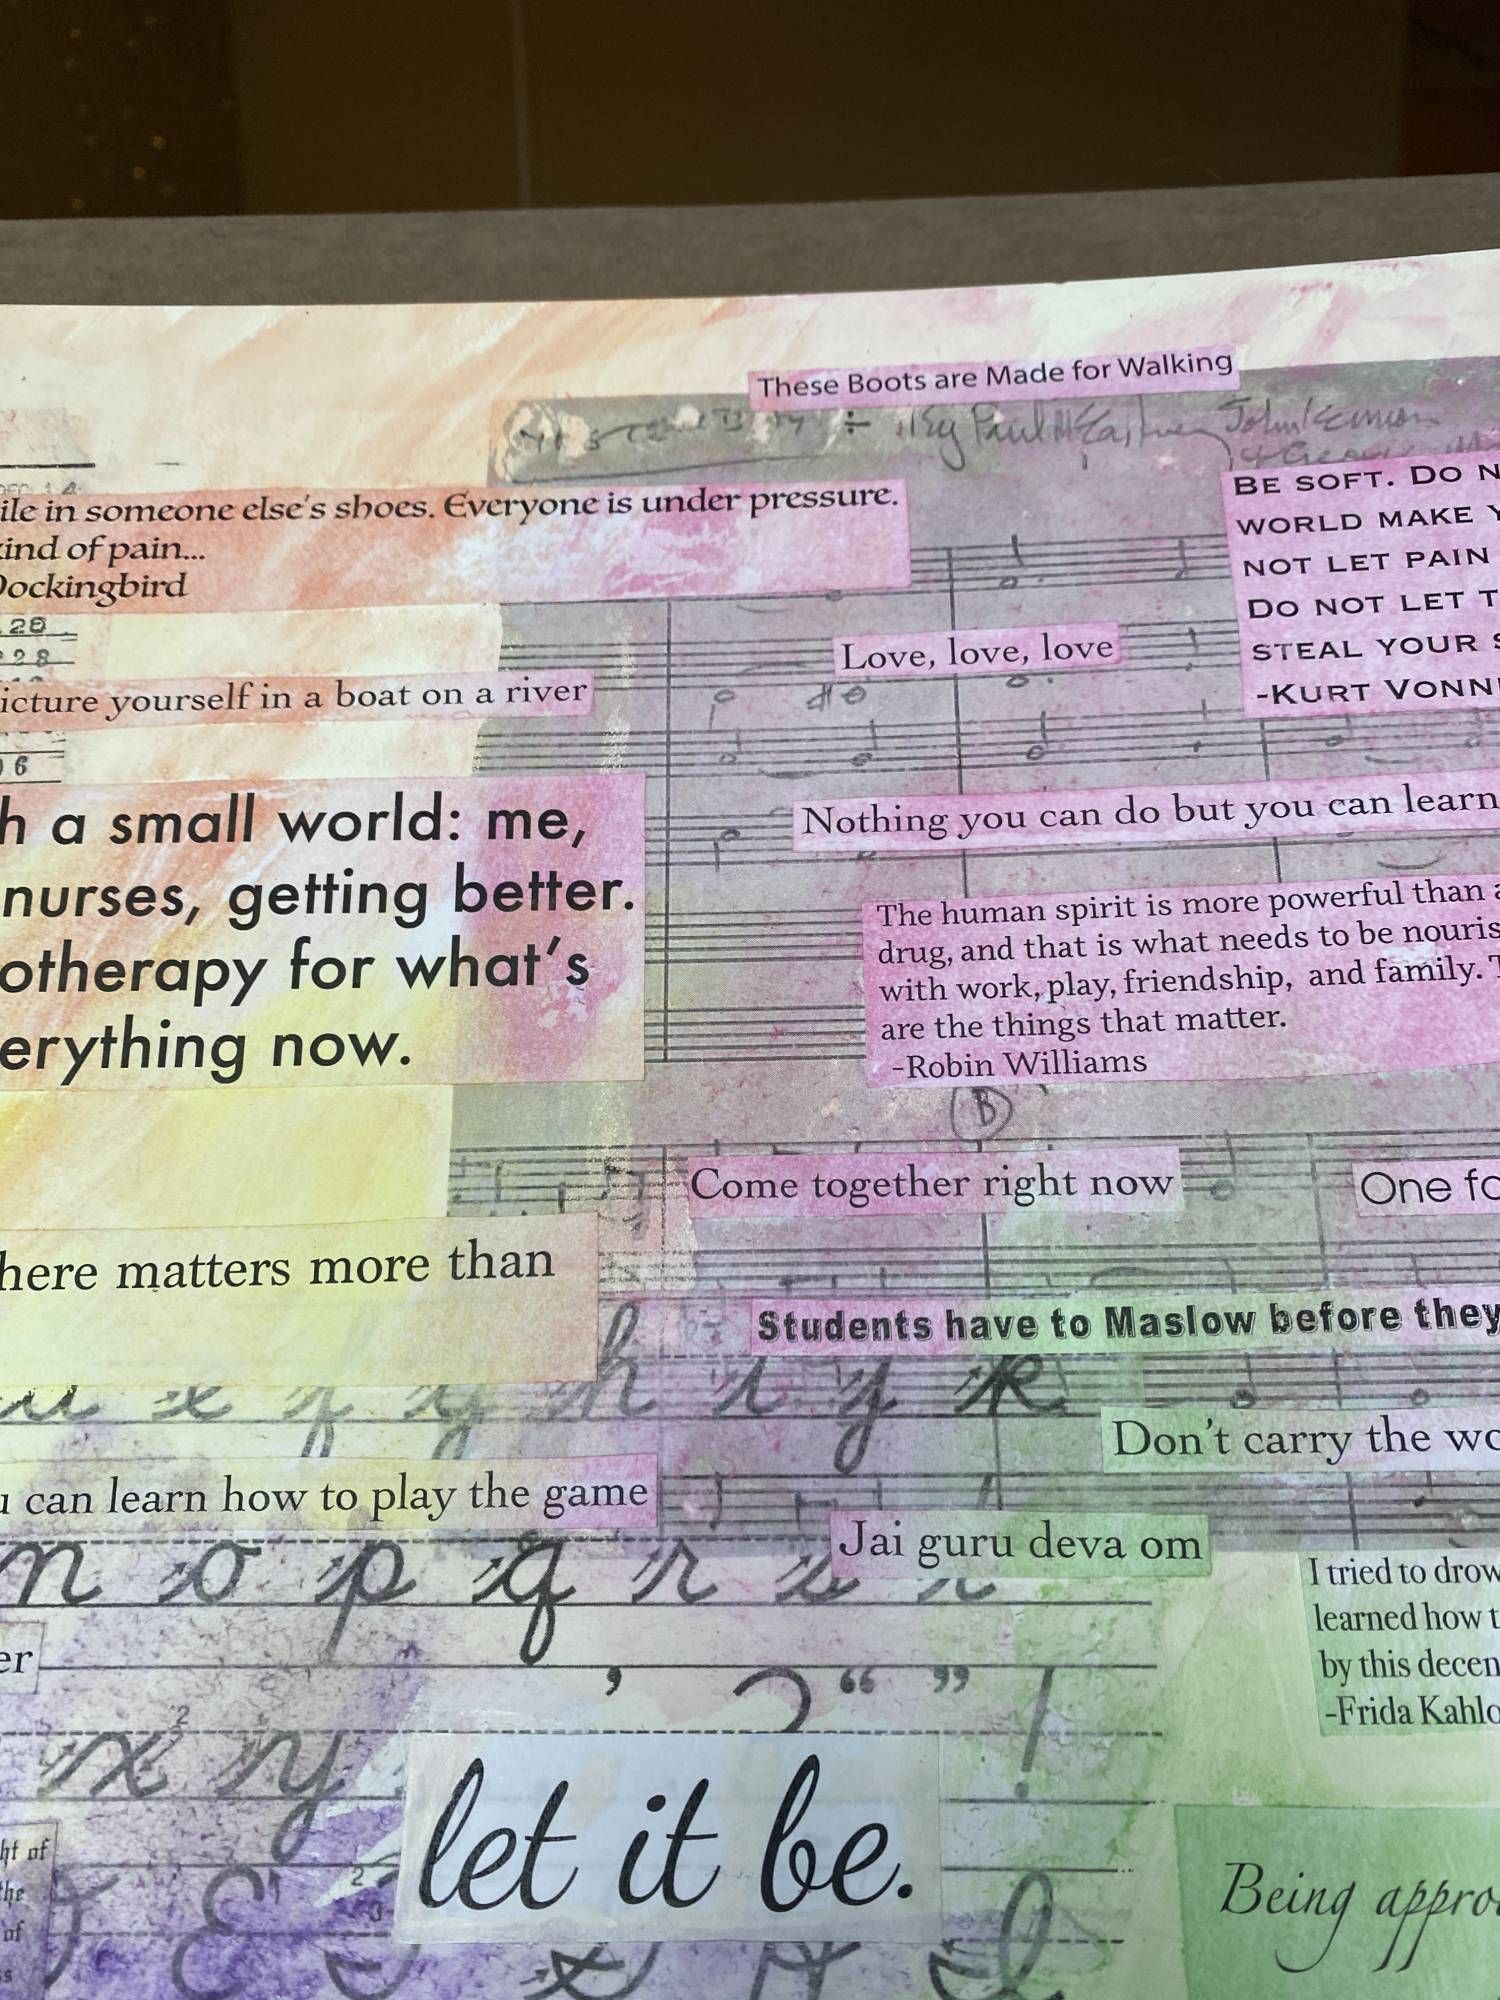 These Boots are Made for Walking
By Paul McCartney John Lennon
ile in someone else's shoes. Everyone is under pressure.
kind of pain...
Dockingbird
BE SOFT. DO N
WORLD MAKE Y
NOT LET PAIN
DO NOT LET T
STEAL YOUR S
-KURT VONN
28
28
Love, love, love
icture yourself in a boat on a river
06
h a small world: me,
nurses, getting better.
otherapy for what's
erything now.
Nothing you can do but you can learn
The human spirit is more powerful than a
drug, and that is what needs to be nouris
with work, play, friendship, and family. T
are the things that matter.
-Robin Williams
B
Come together right now
One fo
here matters more than
Students have to Maslow before they
Don't carry the wo
u can learn how to play the game
Jai guru deva om
m o p q r s
I tried to drow
learned how t
by this decen
-Frida Kahlo
er
, ? “ ” !
x y
2
let it be.
ht of
the
of
s
2
3
Being appro